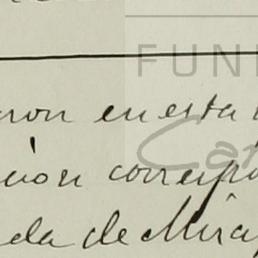 FUN
ron en esta
Car
ción corresp
da de Mira